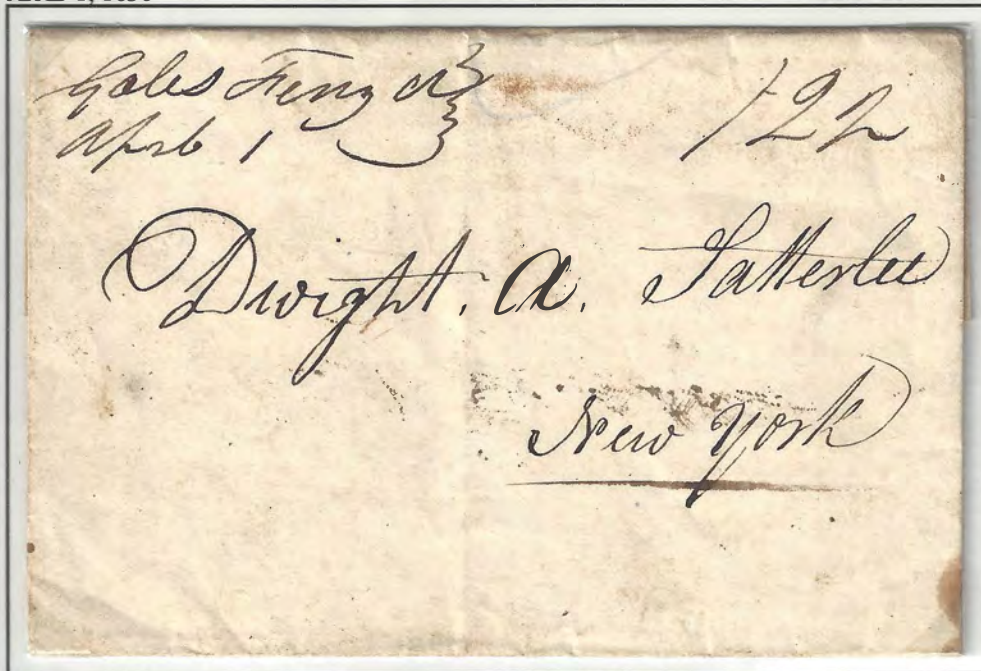 Gales Ferry Ct 12½
April 1
Dwight. A. Satterlee
New York